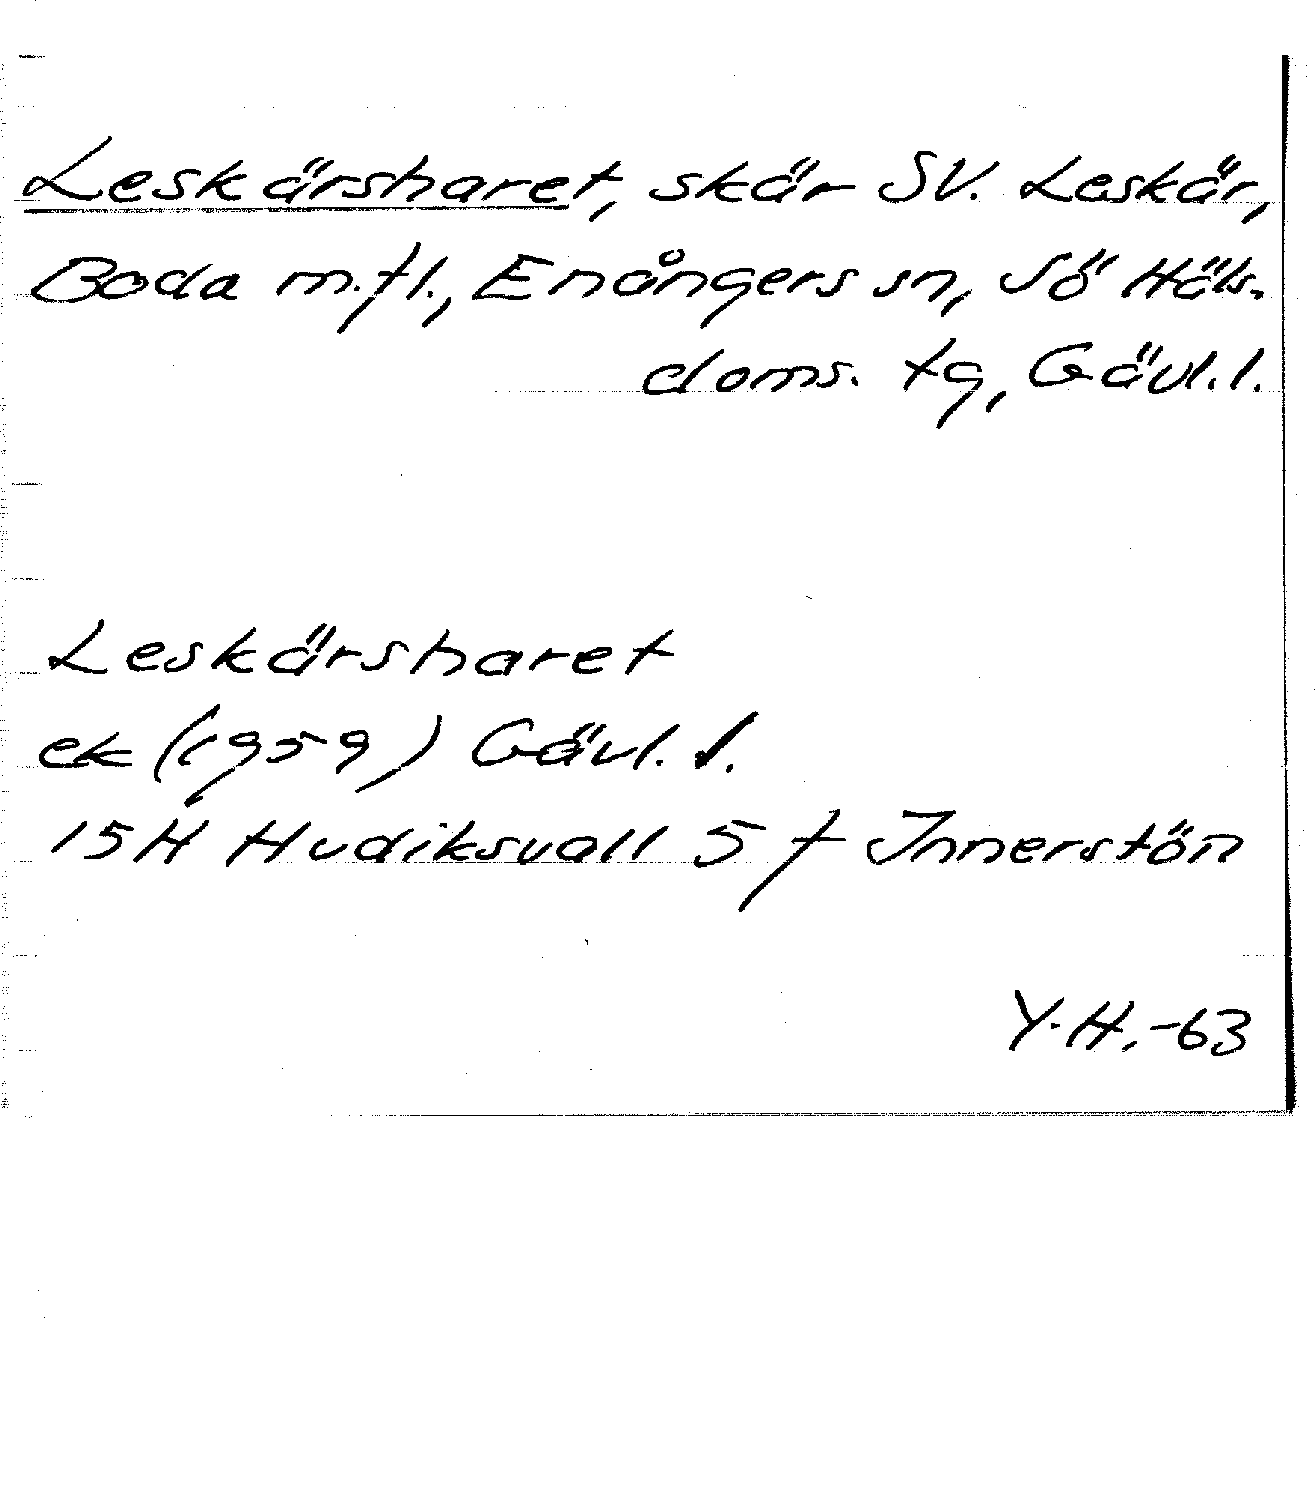 Leskärsharet, skär SV. Leskär,
Boda m.fl., Enångers sn, Sö Häls.
doms. tg, Gävl. l.
Leskärsharet
ek (1959) Gävl. l.
15H Hudiksvall 5 f Innerstön
Y.H. -63